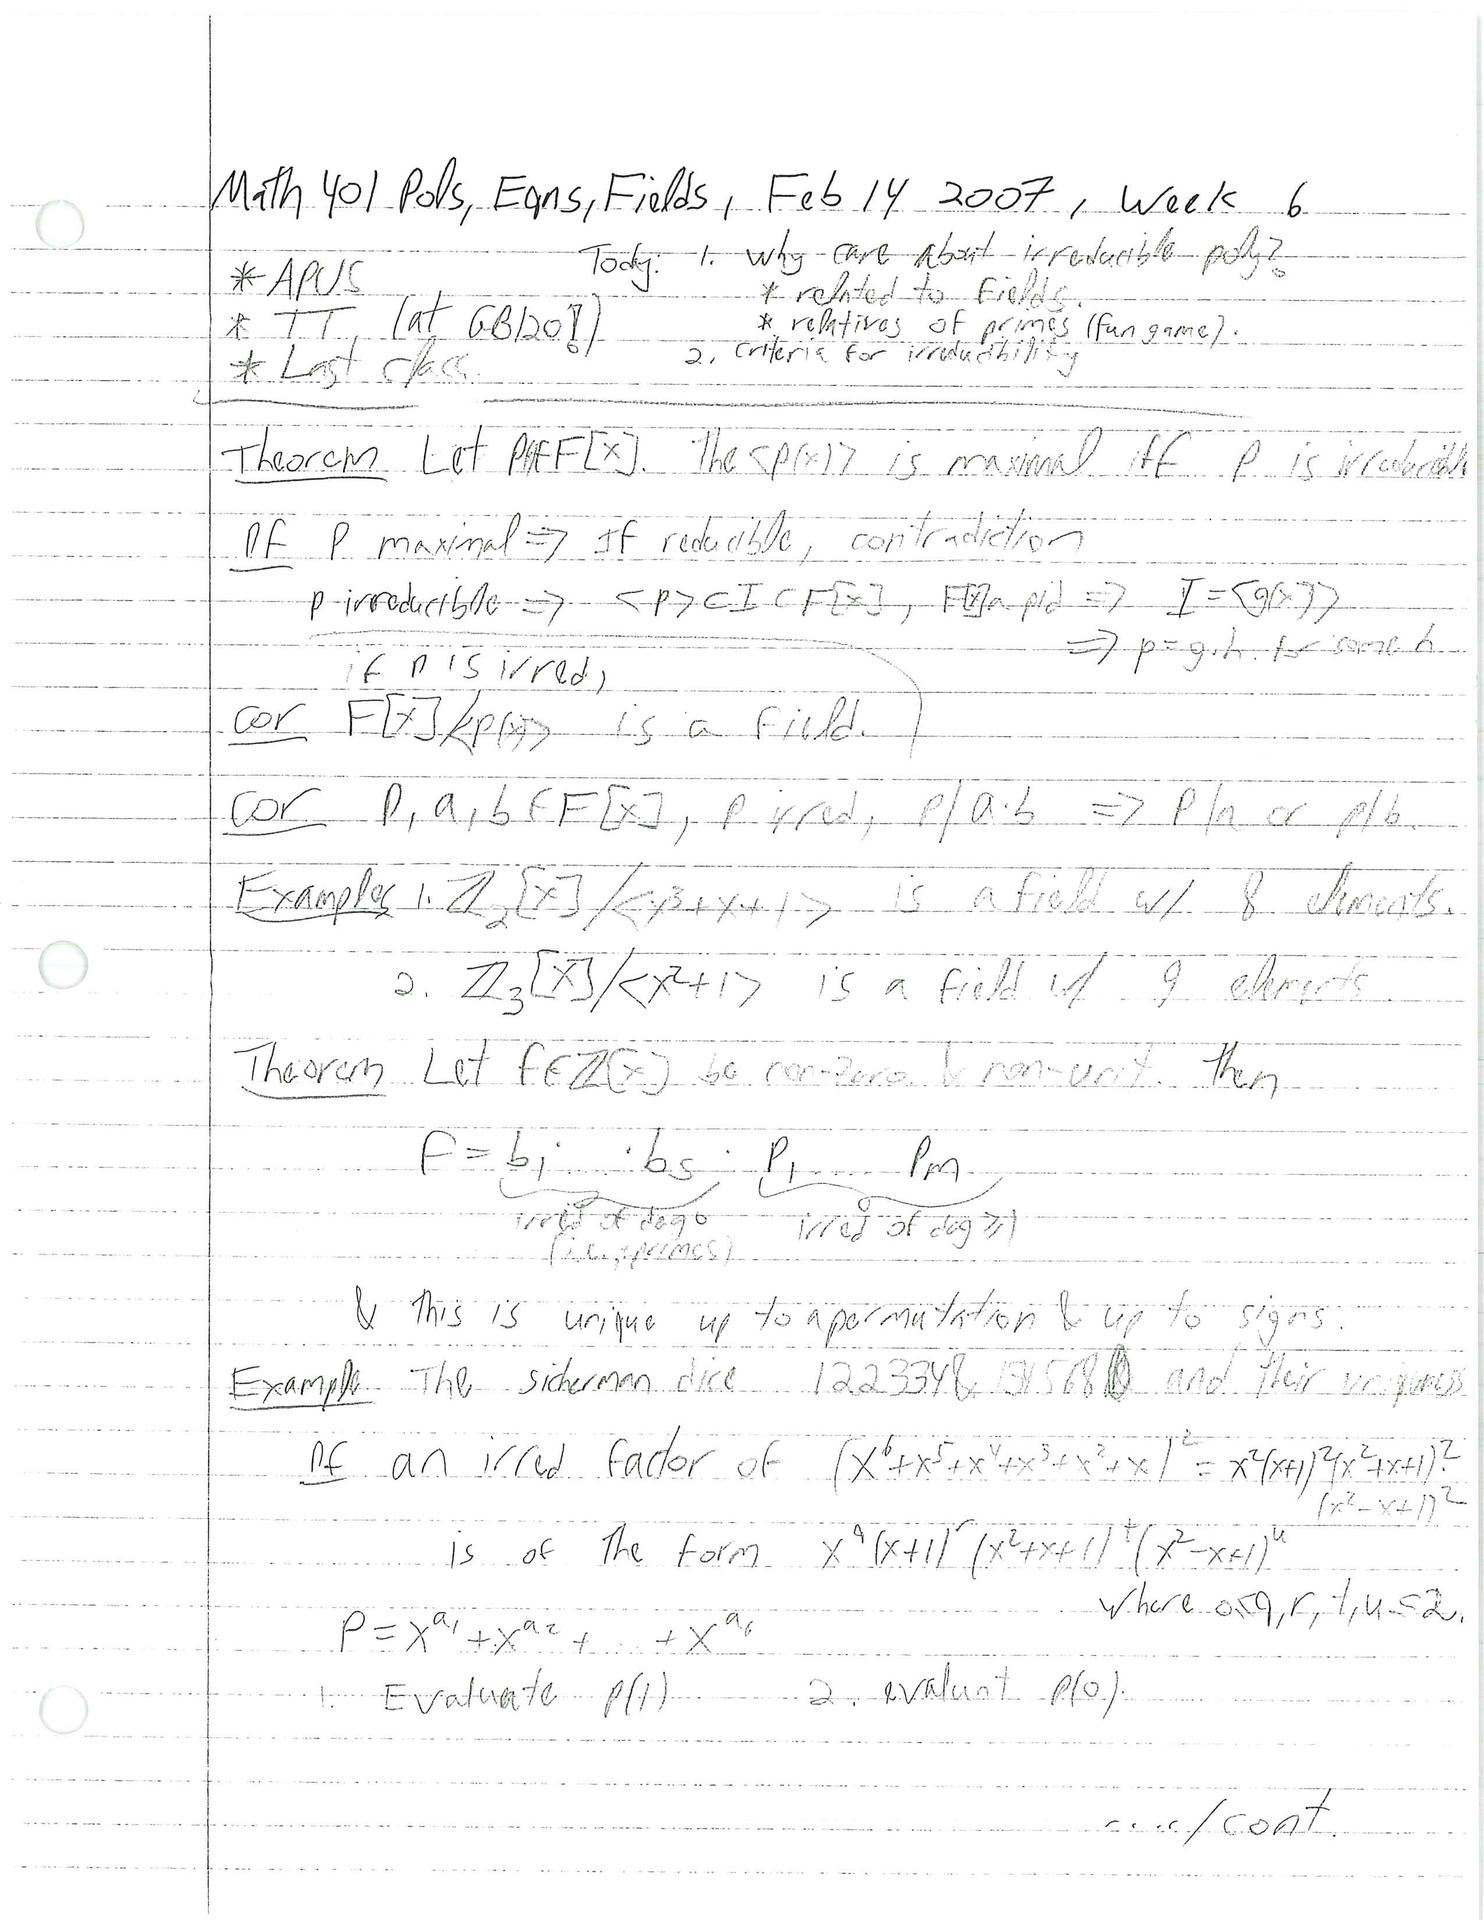 Math 401 Pols, Eqns, Fields, Feb 14 2007, Week 6
* APUS
* TT (at GB120!)
* Last class.
Today: 1. Why care about irreducible poly?
* related to fields.
* relatives of primes (fun game).
2. Criteria for irreducibility
Theorem Let p∈F[x]. The <p(x)> is maximal iff p is irreducible
Pf P maximal => If reducible, contradiction
p irreducible => <p>⊂I⊂F[x], F[x] a pid => I=<g(x)>
=> p=g.h. for some h
if p is irred,
cor F[x]/<p(x)> is a field.
cor P,a,b∈F[x], p irred, p/a·b => p/a or p/b.
Examples 1. ℤ₂[x]/<x³+x+1> is a field w/ 8 elements.
2. ℤ₃[x]/<x²+1> is a field w/ 9 elements.
Theorem Let f∈ℤ[x] be non-zero & non-unit. Then
f = b₁· ·bₛ · p₁ .... pₘ
irred of deg 0 irred of deg ≥1
(i.e., ±primes)
& this is unique up to a permutation & up to signs.
Example The sicherman dice 122334& 134568 and their uniqueness
Pf an irred factor of (x⁶+x⁵+x⁴+x³+x²+x)² = x²(x+1)²(x²+x+1)²·
(x²-x+1)²
is of the form x^q(x+1)^r(x²+x+1)^t(x²-x+1)^u
where 0≤q,r,t,u≤2.
P=x^a₁+x^a₂+...+x^a₆
1. Evaluate p(1) 2. evaluat p(0).
..../cont.